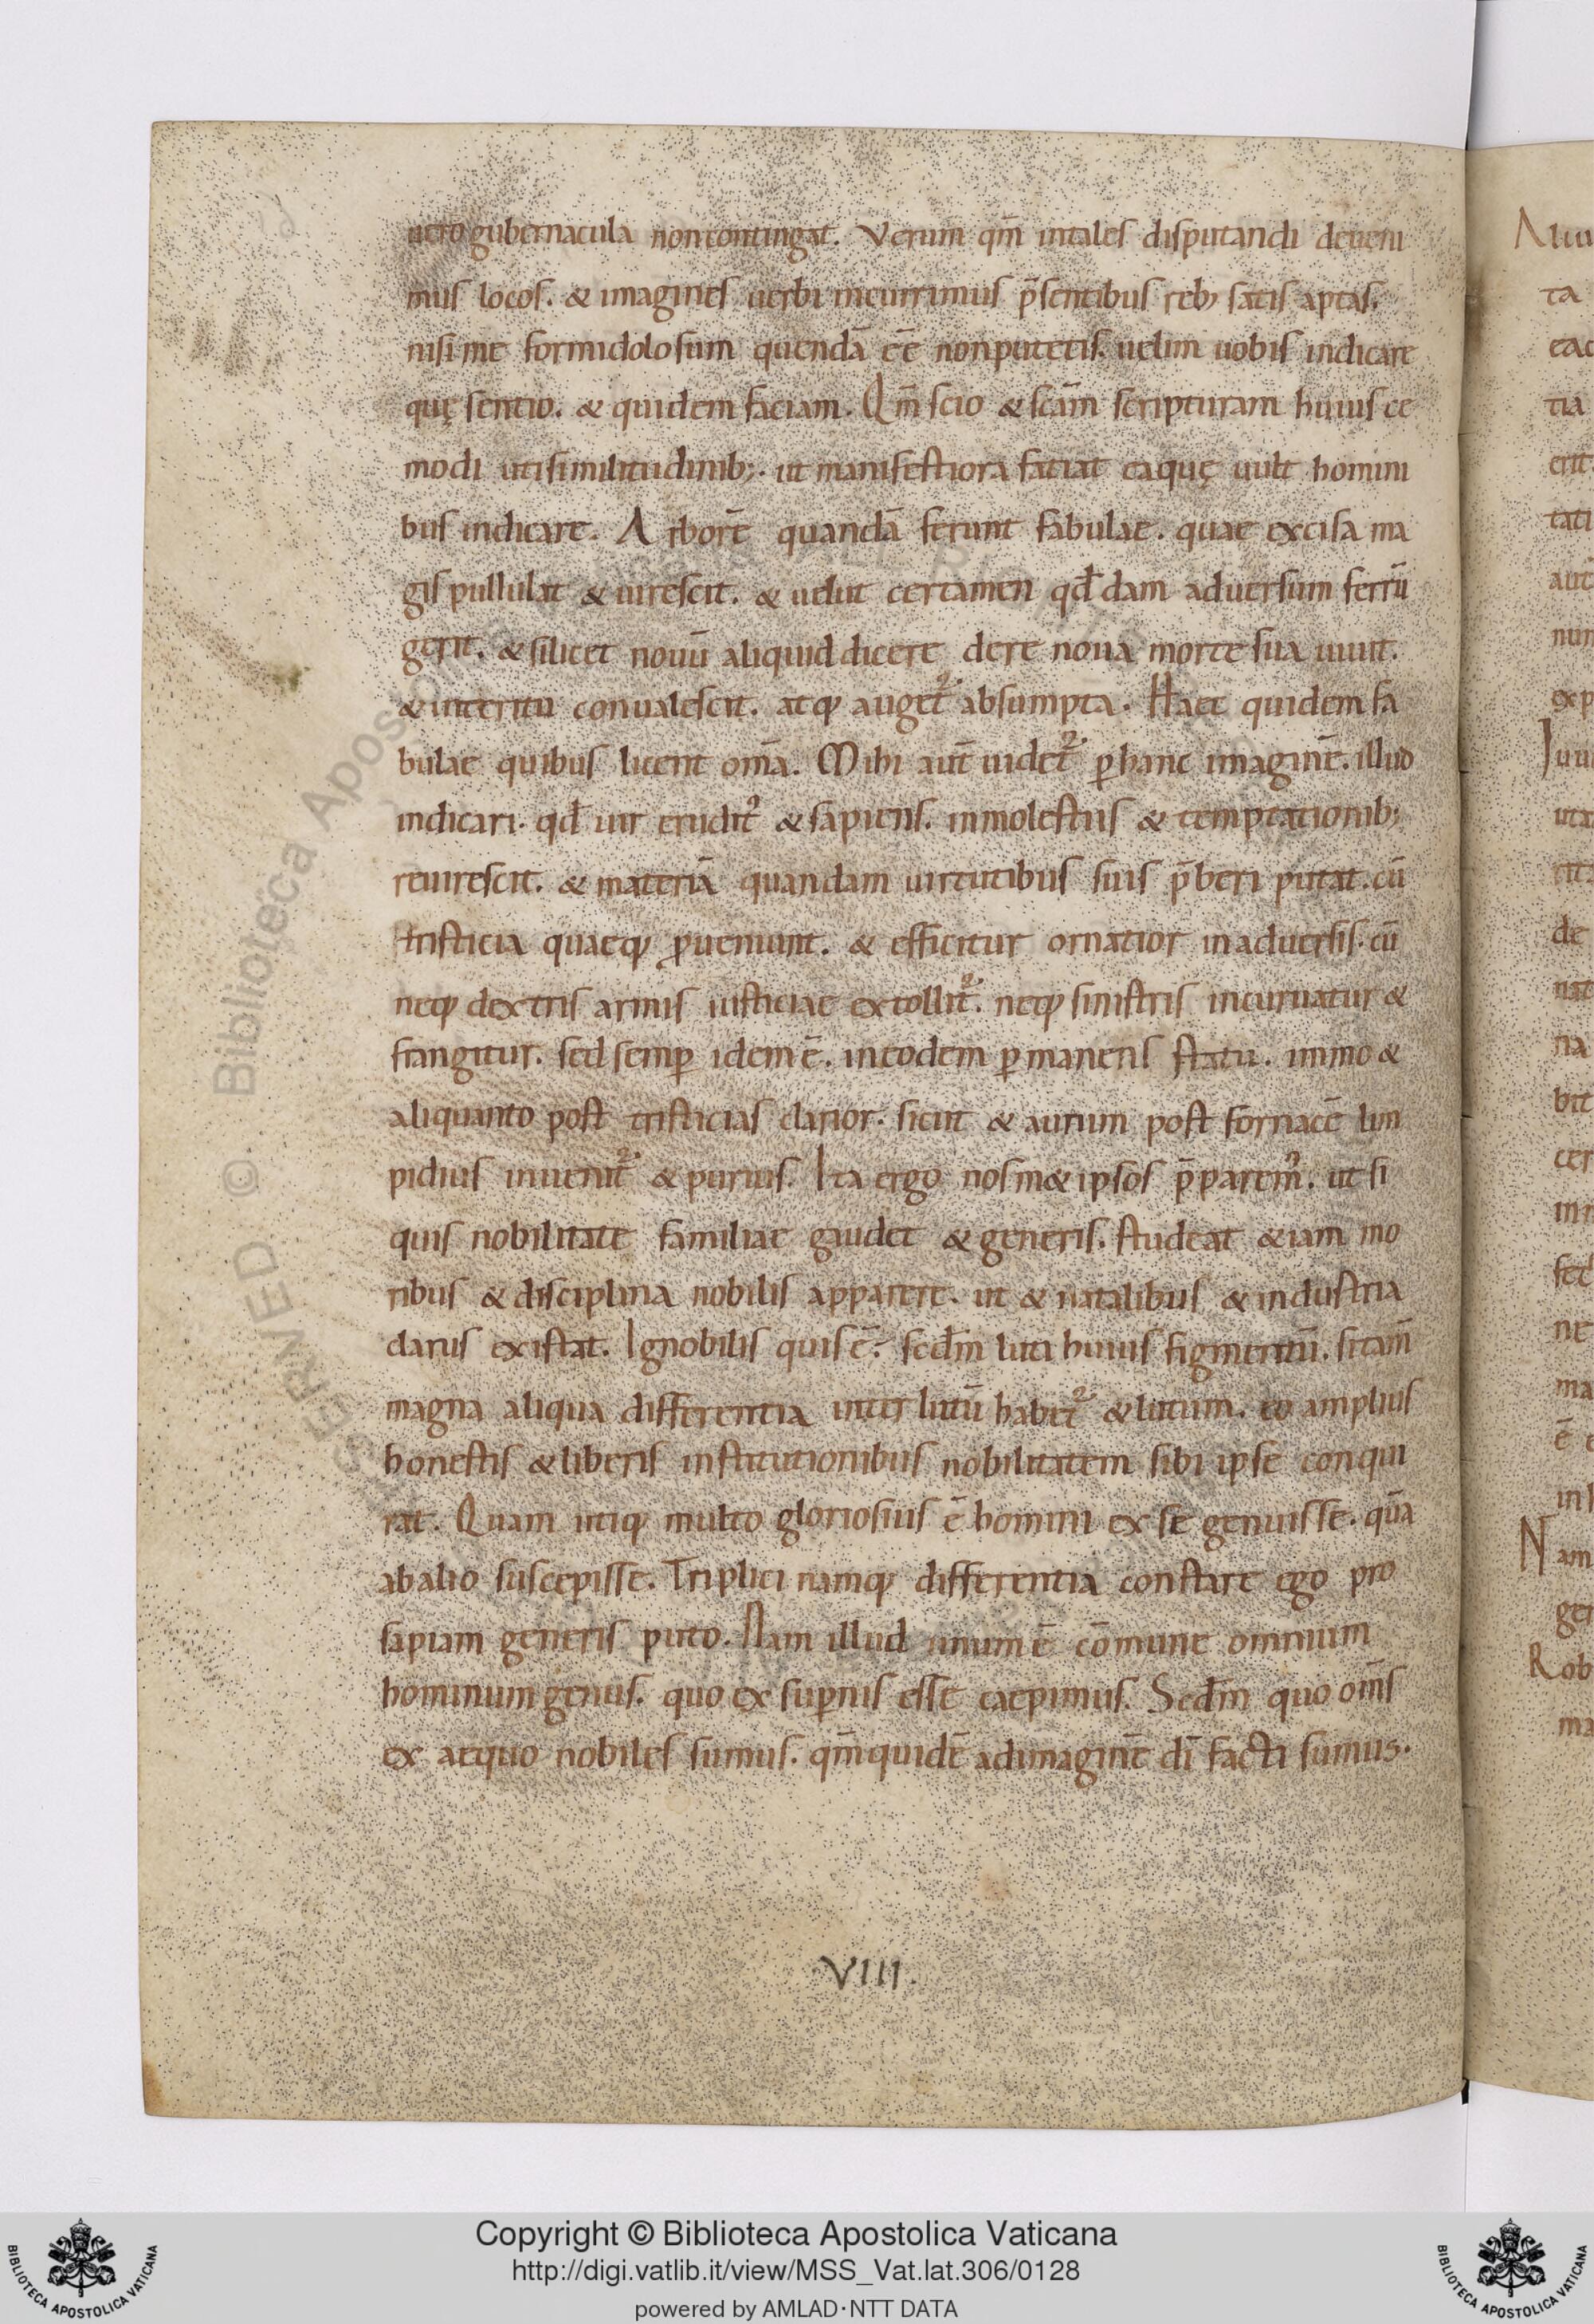 uero gubernacula non contingat. Verum qm̄ in tales disputandi deueni
mus locos. & imagines uerbi incurrimus p̄sentibus reb; satis aptas.
nisi me formidolosum quendā eē̄ non putetis. uelim uobis indicare
quę sentio. & quidem faciam. Qm̄ scio & scām scripturam huius ce
modi uti similitudinib;. ut manifestiora fatiat ea quę uult homini
bus indicare. Arborē quandā ferunt fabulae. quae excisa ma
gis pullulat & uirescit. & uelut certamen qd̄dam aduersum ferrū
gerit. & si licet nouū aliquid dicere de re noua morte sua uiuit.
& interitu conualescit. atq; auget᷑ absumpta. Haec quidem fa
bulae quibus licent om̄a. Mihi aut̄ uidet᷑ ꝑ hanc imaginē. illud
indicari. qd̄ uir erudit᷒ & sapiens. in molestiis & temptationib;
reuirescit. & materiā quandam uirtutibus suis p̄beri putat. cū
tristicia quaeq; ꝓueniunt. & efficitur ornatior in aduersis. cū
neq; dextris armis iusticiae extollit᷑. neq; sinistris incuruatur &
frangitur. sed semꝑ idem ē. in eodem ꝑmanens statu. immo &
aliquanto post tristicias clarior. sicut & aurum post fornacē lim
pidius inuenit᷑ & purius. Ita ergo nosm&ipsos p̄parem᷒. ut si
quis nobilitate familiae gaudet & generis. studeat &iam mo
ribus & disciplina nobilis apparere. ut & natalibus & industria
clarus existat. Ignobilis quis ē. sedm̄ luti huius figmentū. si tam̄
magna aliqua differentia inter lutū habet᷑ & lutum. eo amplius
honestis & liberis institutionibus nobilitatem sibi ipse conqui
rat. Quam utiq; multo gloriosius ē homini ex se genuisse. quā
ab alio suscepisse. Triplici namq; differentia constare ego pro
sapiam generis puto. Nam illud unum ē cōmune omnium
hominum genus. quo ex suꝑnis esse caepimus. Sedm̄ quo om̄s
ex aequo nobiles sumus. qm̄quidē ad imaginē dī facti sumus.
VIII.
Aliu
ta
eac
tia
erit
tati
aut
num
exp
Iuu
uta
rit
de
nat
na
bit
cer
in
sed
ne
ma
ē
in
Nam
gen
Rob
ma
RESERVED © Biblioteca Apostolica
Copyright © Biblioteca Apostolica Vaticana
http://digi.vatlib.it/view/MSS_Vat.lat.306/0128
powered by AMLAD·NTT DATA
BIBLIOTECA APOSTOLICA VATICANA
BIBLIOTECA APOSTOLICA VATICANA